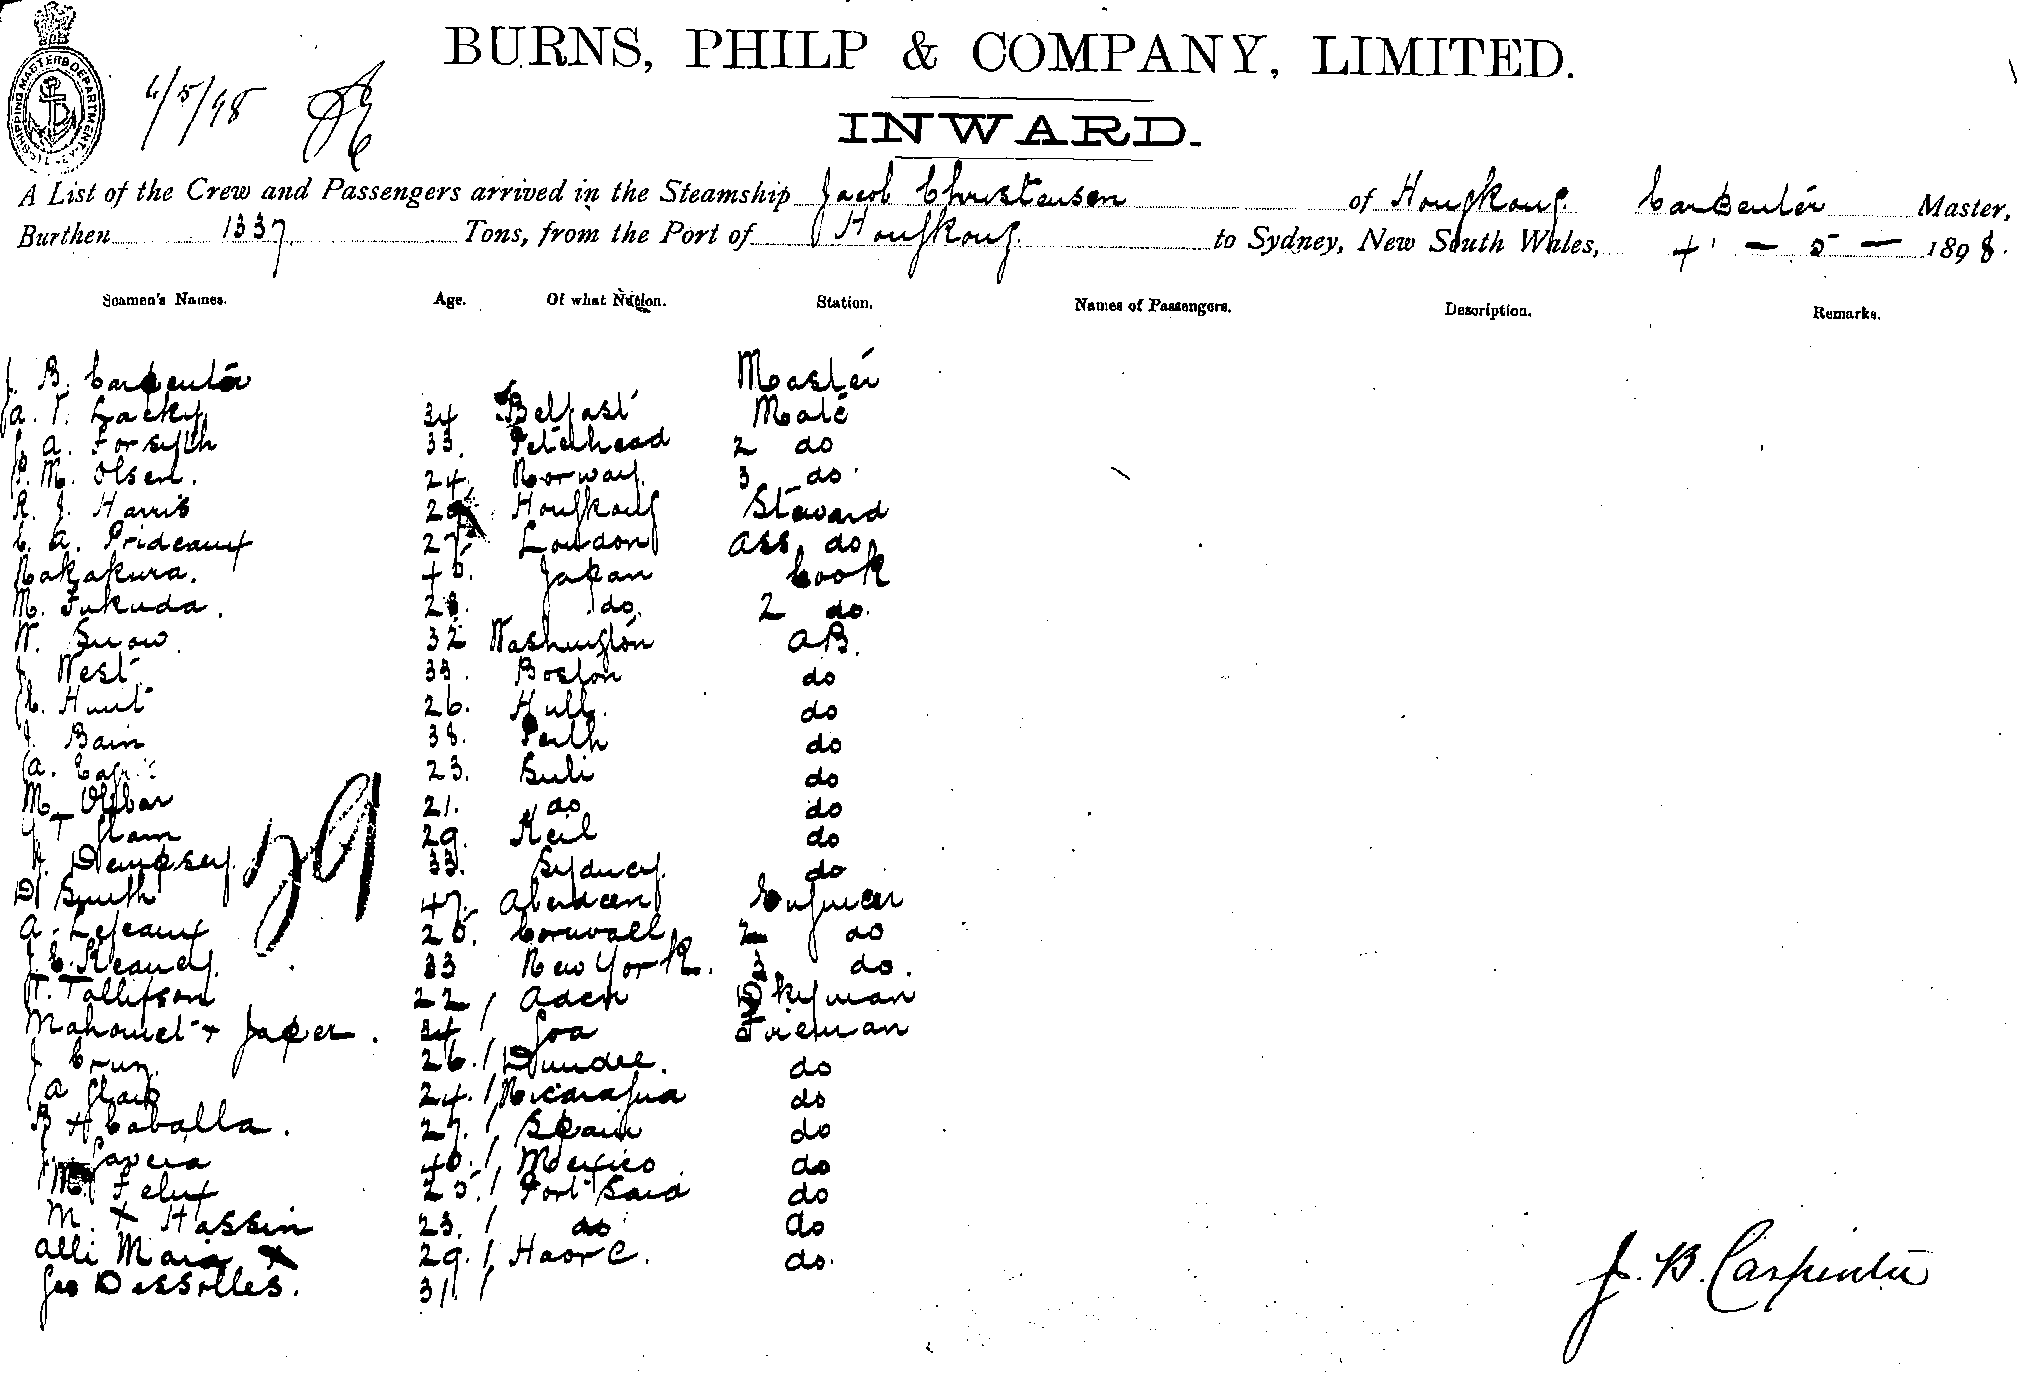 BURNS, PHILP & COMPANY, LIMITED.
SHIPPING MASTERS DEPARTMENT
4/5/98
INWARD.
A List of the Crew and Passengers arrived in the Steamship Jacob Christensen of Hongkong Carpenter Master,
Burthen 1337 Tons, from the Port of Hongkong to Sydney, New South Wales, 4 - 5 - 1898.
Seamen's Names. Age. Of what Nation. Station. Names of Passengers. Description. Remarks.
J. B. Carpenter Master
A. T. Lacky 34 Belfast Mate
A. Forsyth 33. Peterhead 2 do
P. M. Olsen. 24. Norway. 3 do
R. J. Harris Hongkong Steward
C. A. Prideaux 27. London Ass do
Nakakura. 40. Japan Cook
M. Fukuda. 28. do 2 do.
W. Snow. 32 Washington AB.
J. West 33. Boston do
C. Hunt 26. Hull. do
J. Bain 38. Perth do
A. 23. do
M 21. do do
29. Keil do
Dempsey. 33. Sydney. do
79
D. Smith 47. Aberdeen Engineer
A. Lejeaux 26. Cornwall 2 do
J. C. Keaney. 33 New York. 3 do.
T. Tollifson 22 / Aden Dkyman
Mahomet x Jaffer. 34 / Goa Fireman
J. 26. / Dundee. do
A 24. / Nicaragua do
B H Caballa. 27. / Spain do
J. 40. / Mexico do
M. Felux 25. / Port Said do
M. x Hassin 23. / do do
Alli x 29. / Havre. do.
Geo Dessolles. 31. /
J. B. Carpenter